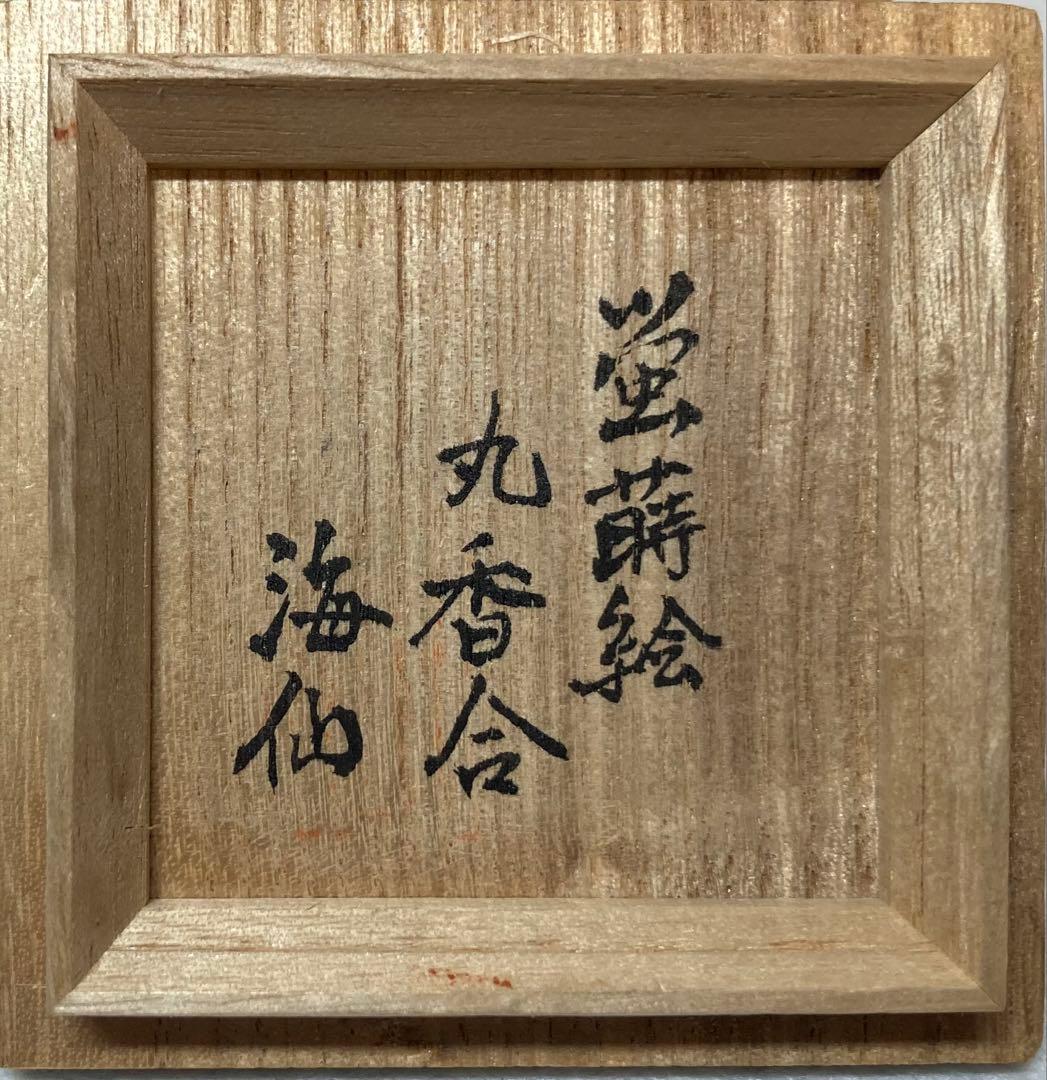 蛍蒔絵
丸香合
海仙